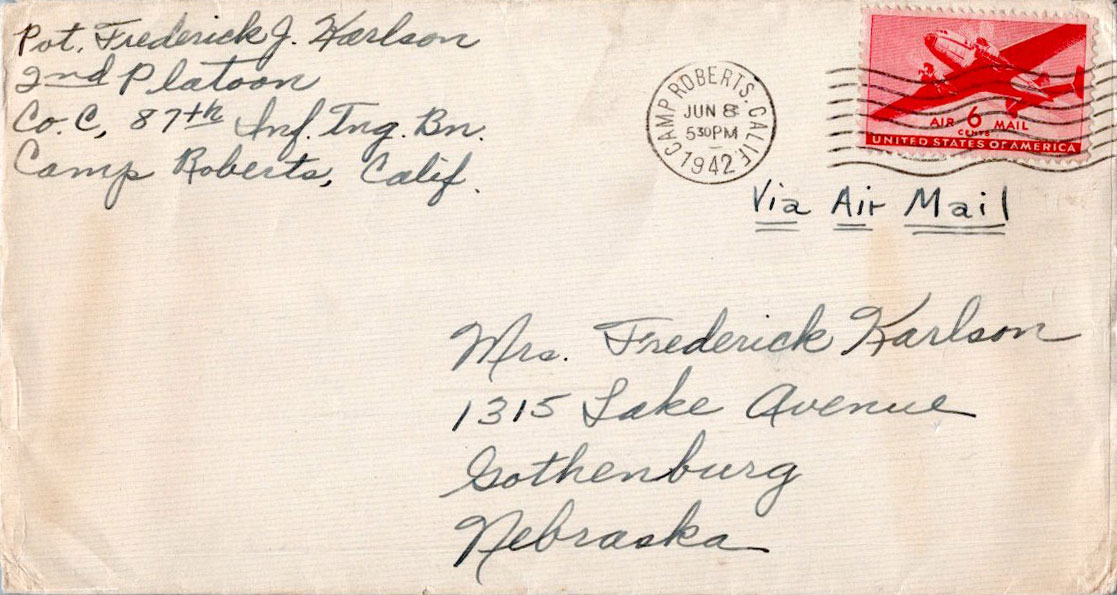 Pvt. Frederick J. Karlson
2nd Platoon
Co. C, 87th Inf. Tng. Bn.
Camp Roberts, Calif.
CAMP ROBERTS. CALIF.
JUN 8
530PM
1942
AIR 6 MAIL
CENTS
UNITED STATES OF AMERICA
Via Air Mail
Mrs. Frederick Karlson
1315 Lake Avenue
Gothenburg
Nebraska